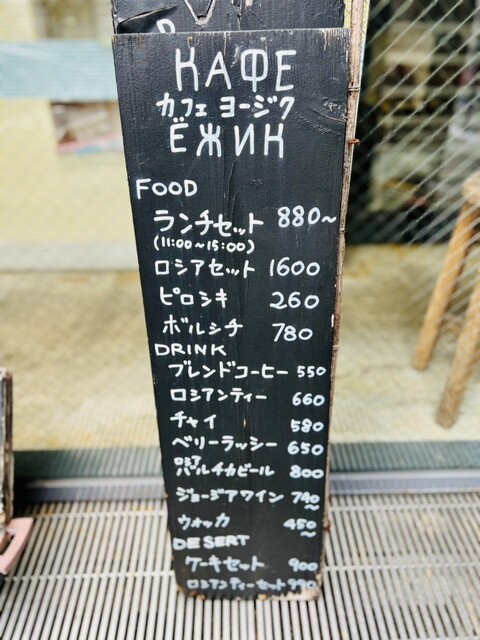 КАФЕ
カフェ ヨージク
ЁЖИК
FOOD
ランチセット 880~
(11:00~15:00)
ロシアセット 1600
ピロシキ 260
ボルシチ 780
DRINK
ブレンドコーヒー 550
ロシアンティー 660
チャイ 580
ベリーラッシー 650
ロシア
バルチカビール 800
ジョージアワイン 740~
ウォッカ 450~
DESERT
ケーキセット 900
ロシアンティーセット 990